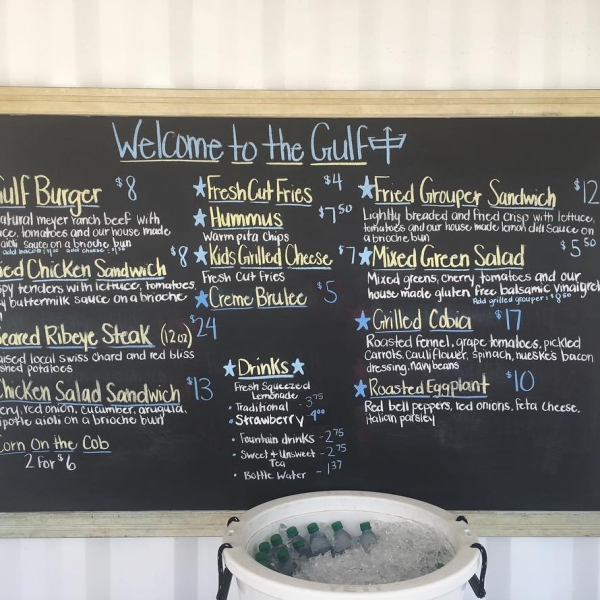 Welcome to the Gulf
Gulf Burger $8
natural meyer ranch beef with
tomatoes and our house made
aioli sauce on a brioche bun
add bacon add cheese
Fried Chicken Sandwich $8
tenders with lettuce, tomatoes,
buttermilk sauce on a brioche
Seared Ribeye Steak (12oz) $24
local swiss chard and red bliss
potatoes
Chicken Salad Sandwich $13
red onion, cucumber, arugula,
aioli on a brioche bun
Corn On the Cob
2 For $6
Fresh Cut Fries $4
Hummus $7.50
Warm pita Chips
Kids Grilled Cheese $7
Fresh Cut Fries
Creme Brulee $5
Drinks
Fresh Squeezed
Lemonade
• Traditional - 3.75
• Strawberry - 4.00
• Fountain drinks - 2.75
• Sweet & Unsweet - 2.75
Tea
• Bottle Water - 1.37
Fried Grouper Sandwich $12
Lightly breaded and fried crisp with lettuce,
tomatoes and our house made lemon dill sauce on
a brioche bun
Mixed Green Salad $5.50
Mixed greens, cherry tomatoes and our
house made gluten free balsamic vinaigrette
Add grilled grouper: $8.50
Grilled Cobia $17
Roasted fennel, grape tomatoes, pickled
carrots, cauliflower, spinach, nueske's bacon
dressing, navy beans
Roasted Eggplant $10
Red bell peppers, red onions, feta cheese,
Italian parsley